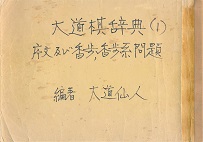 大道棋辞典(1)
序文及び香歩,香歩系問題
編者 大道仙人